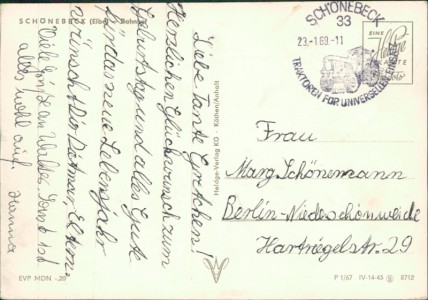 SCHÖNEBECK (Elbe) Bahnhof
Liebe Tante Gretchen!
Herzlichen Glückwunsch zum
Geburtstag und alles Gute
für das neue Lebensjahr
wünscht Dir Dietmar, Eltern.
Viele Grüße an Walter. Sonst ist
alles wohl auf. Hanna
Heldge-Verlag KG · Köthen/Anhalt
SCHÖNEBECK
33
23.-1.69.-11
TRAKTOREN FÜR UNIVERSELLEN EINSATZ
EINE
Heldge
KARTE
Frau
Marg. Schönemann
Berlin-Niederschönweide
Hartriegelstr. 29
EVP MDN -,20
P 1/67 IV-14-45 8712